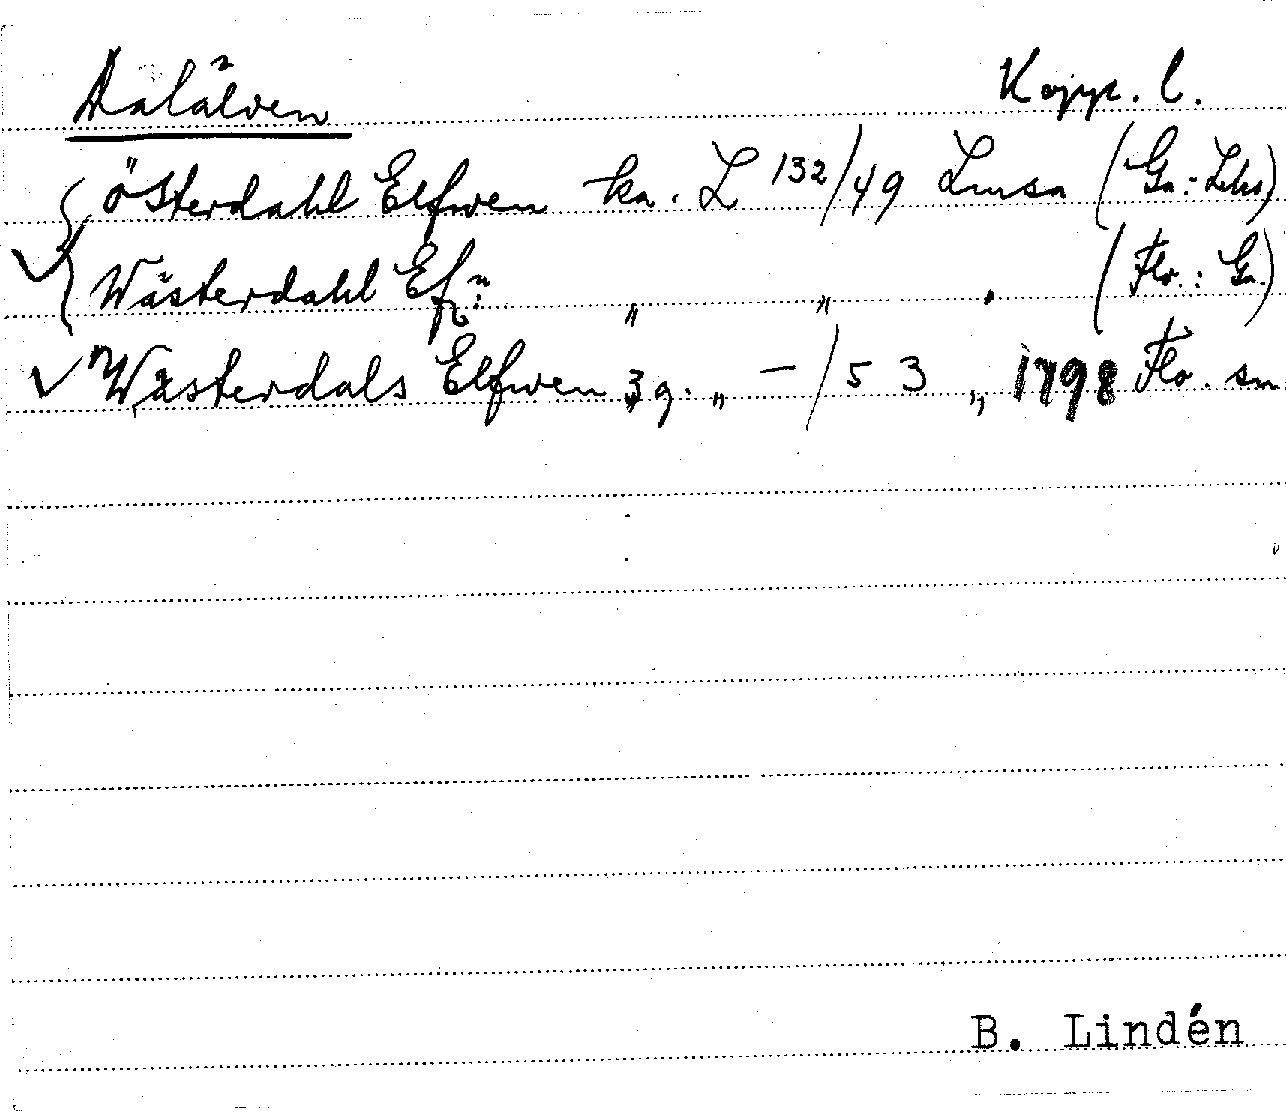 Dalälven Kopp. l.
Österdahl Elfwen ka. L 132/49 Lima (Ga: Leks)
Wästerdahl Ef:n " " . (Flo.: Ga.)
Wästerdals Elfwen 3 g. " —/53 " 1798 Flo. sn
B. Lindén